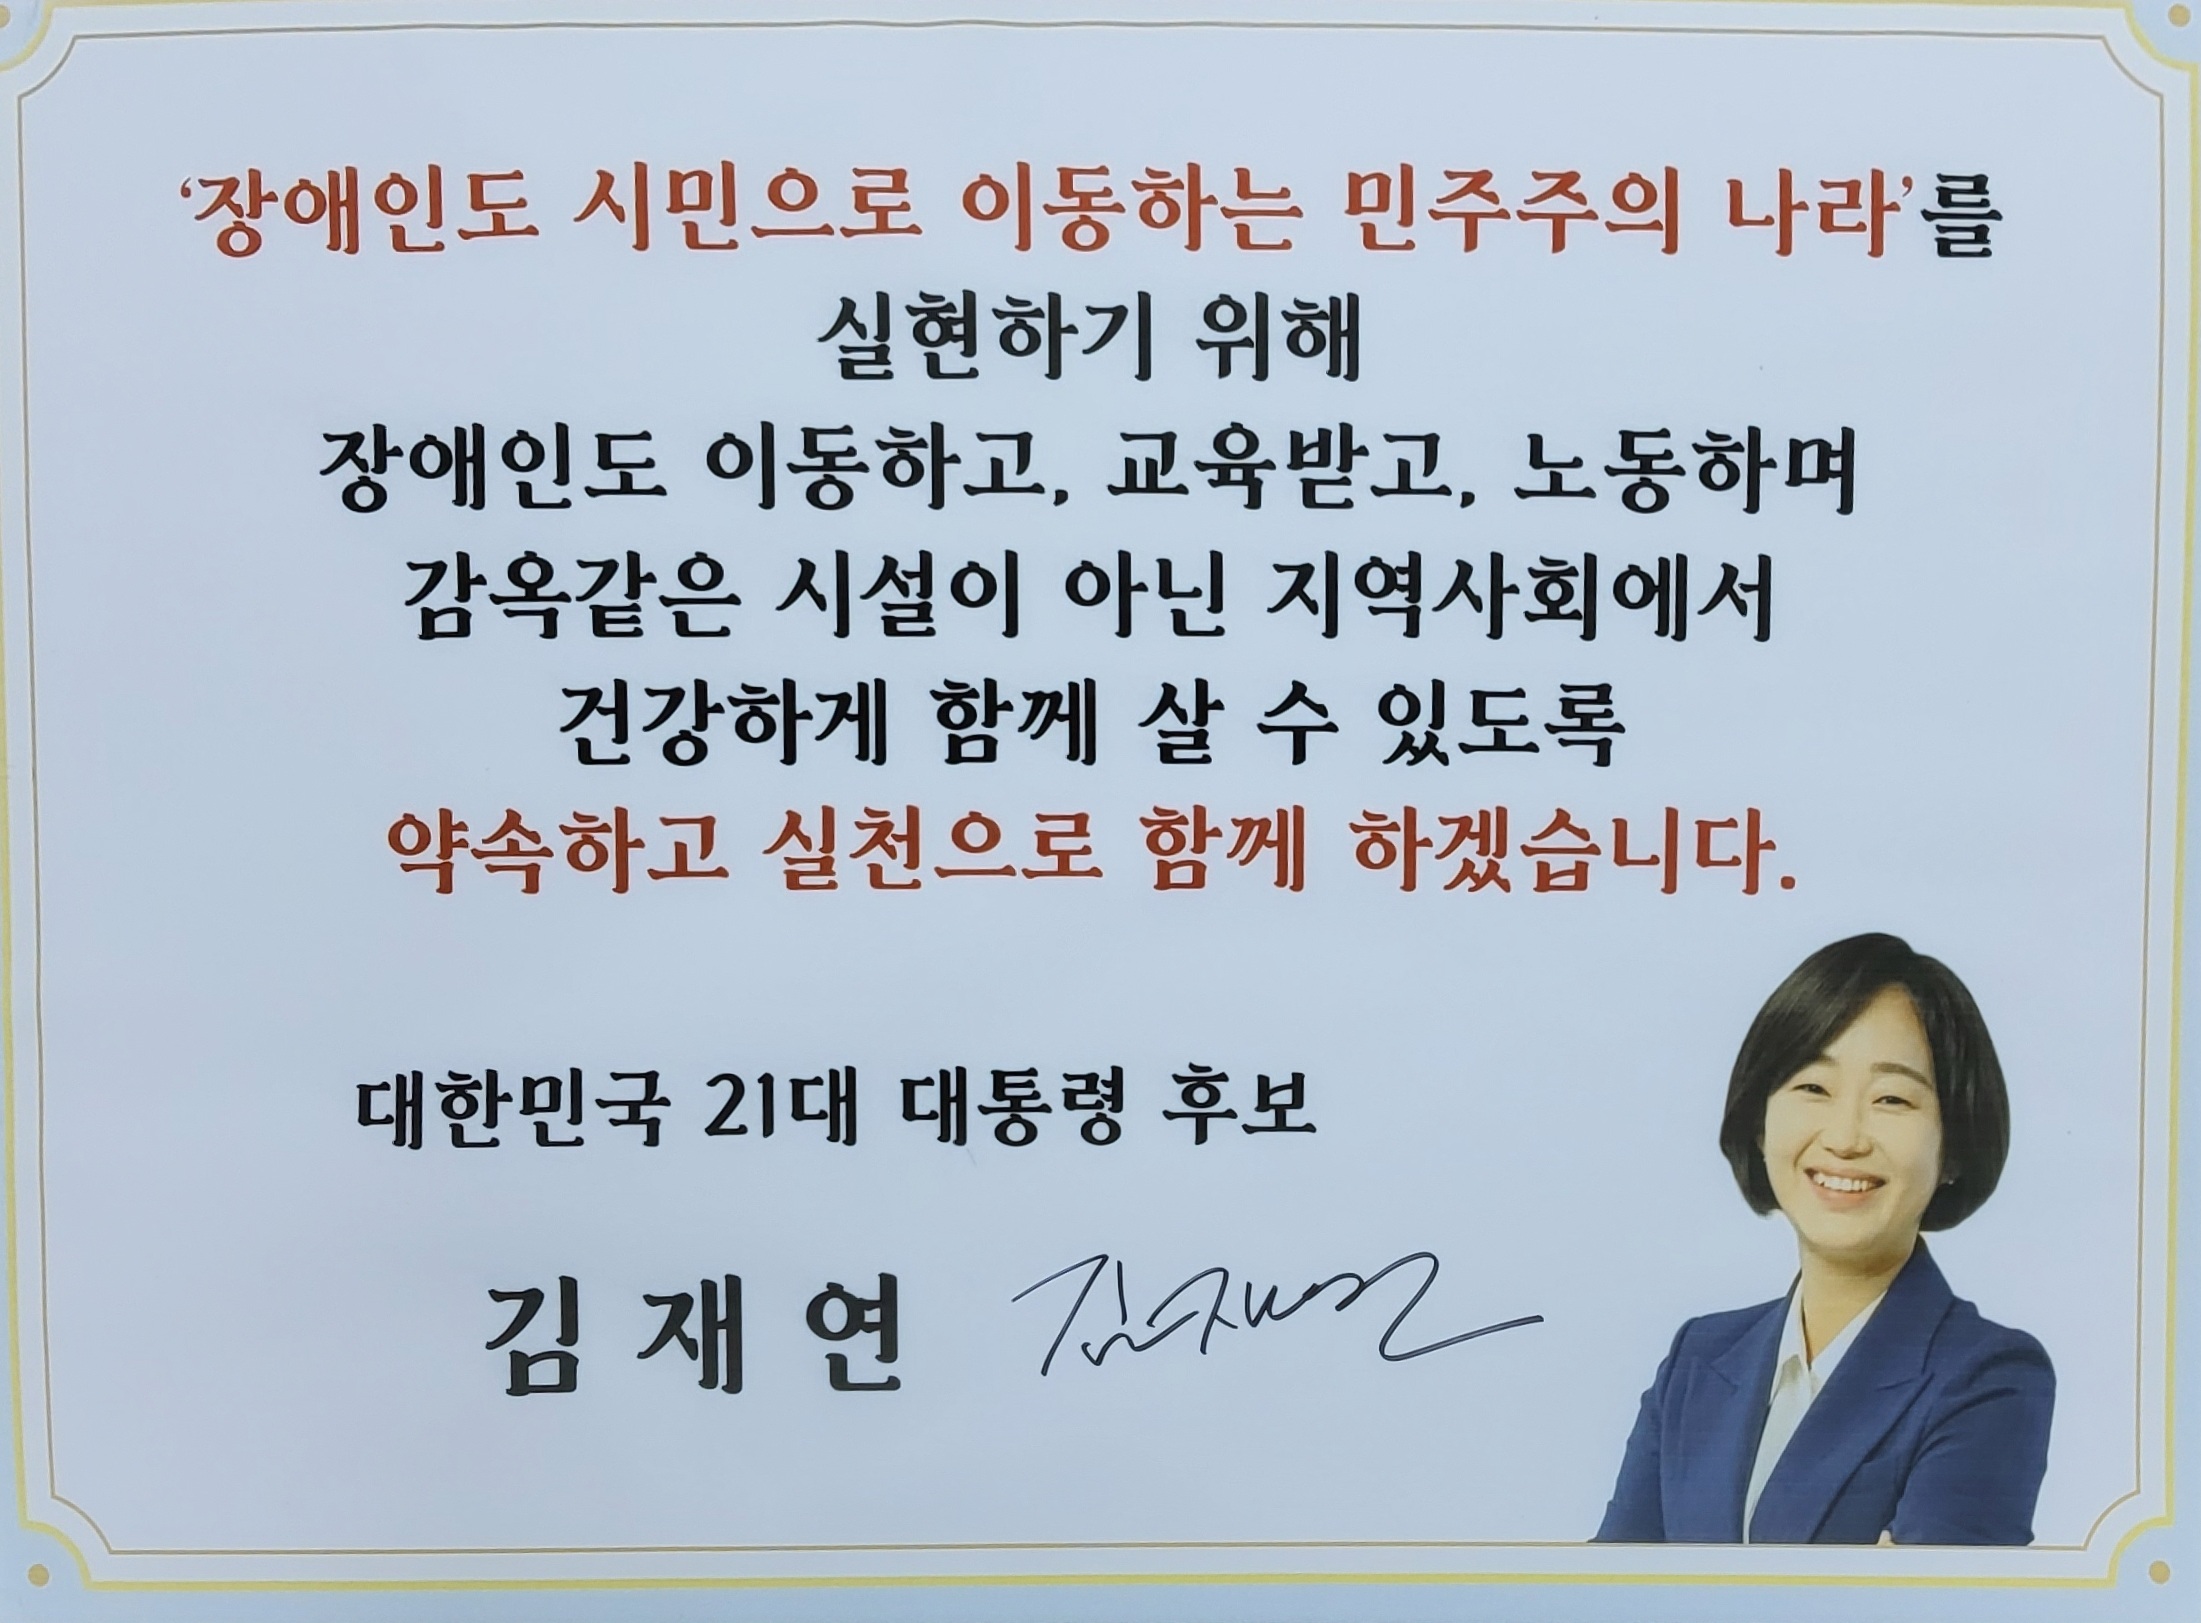 ‘장애인도 시민으로 이동하는 민주주의 나라’를
실현하기 위해
장애인도 이동하고, 교육받고, 노동하며
감옥같은 시설이 아닌 지역사회에서
건강하게 함께 살 수 있도록
약속하고 실천으로 함께 하겠습니다.
대한민국 21대 대통령 후보
김 재 연 김재연